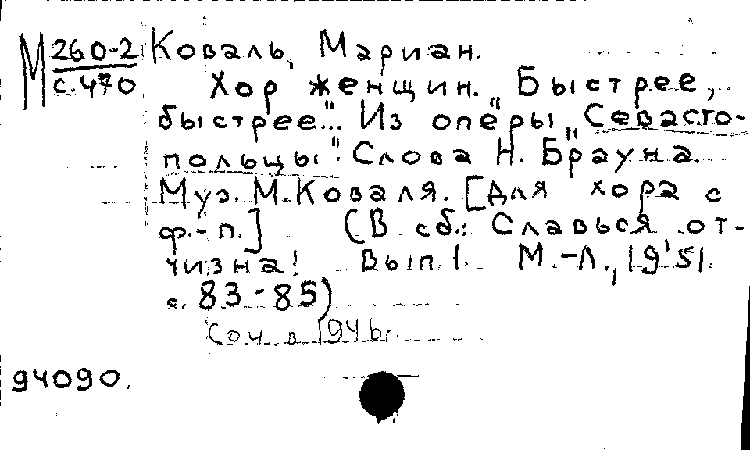 М 260-2 Коваль, Мариан.
с.470 Хор женщин. "Быстрее,
быстрее...". Из оперы "Севасто-
польцы". Слова Н. Брауна.
Муз. М. Коваля. [Для хора с
ф.-п.] (В сб.: Славься от-
чизна! Вып. 1. М.-Л., 1951.
с. 83-85)
Соч. в 1946г.
94090.